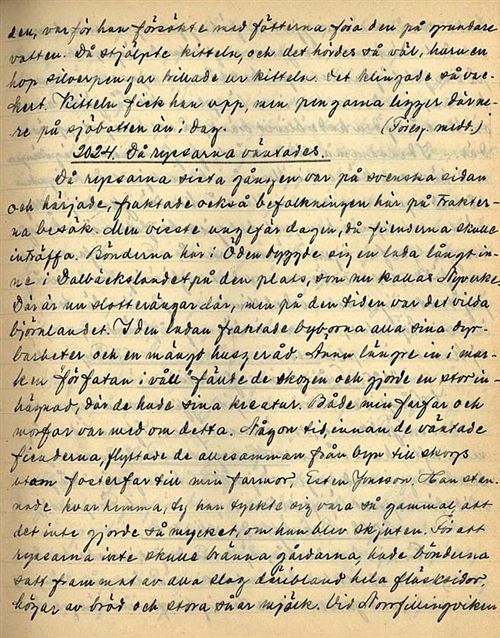 den, varför han försökte med fötterna föra den på grundare
vatten. Då stjälpte kitteln, och det hördes så väl, huru en
hop silverpengar trillade ur kitteln. Det klingade så vac-
kert. Kitteln fick han upp, men pengarna ligger där ne-
re på sjöbotten än i dag. (Föreg. medd.)
2024. Då ryssarna väntades.
Då ryssarna sista gången var på svenska sidan
och härjade, fruktade också befolkningen här på trakter-
na besök. Men visste ungefär dagen, då fienderna skulle
inträffa. Bönderna här i Öden byggde sig en lada långt in-
ne i Dalbäckslandet på den plats, som nu kallas Nyverket.
Där är nu slotterängar där, men på den tiden var det vilda
björnlandet. I den ladan fraktade byborna alla sina dyr-
barheter och en mängd husgeråd. Ännu längre in i mar-
ken "förfatan i våll" fällde de skogen och gjorde en stor in-
hägnad, där de hade sina kreatur. Både min farfar och
morfar var med om detta. Någon tid, innan de väntade
fienderna, flyttade de allesamman från byn till skogs
utom fosterfar till min farmor, Esten Jonsson. Han stan-
nade kvar hemma, ty han tyckte sig vara så gammal, att
det inte gjorde så mycket, om han blev skjuten. För att
ryssarna inte skulle bränna gårdarna, hade bönderna
satt fram mat av alla slag däribland hela fläsksidor,
högar av bröd och stora såar mjölk. Vid Norrfillingviken